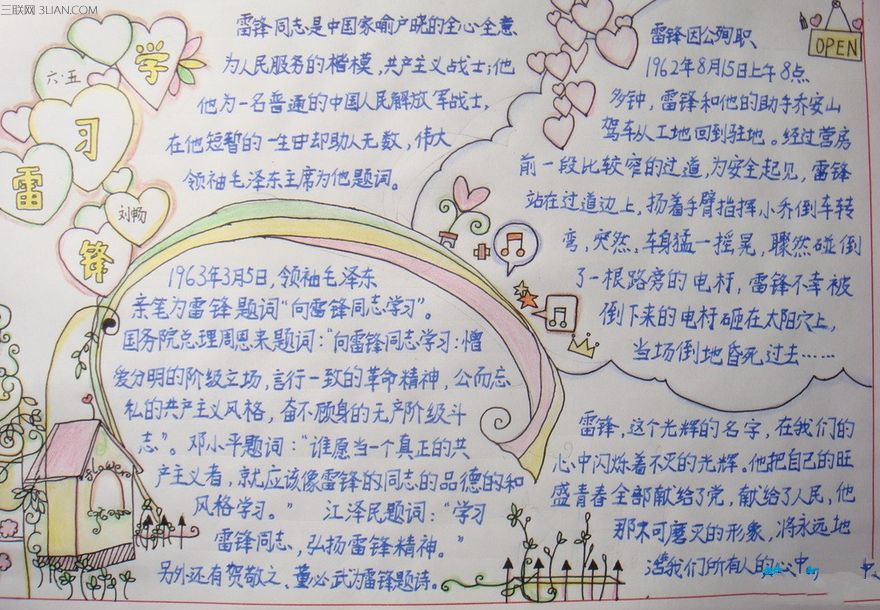 三联网 3LIAN.COM
学
习
雷
锋
六·五
刘畅
雷锋同志是中国家喻户晓的全心全意
为人民服务的楷模，共产主义战士；他
他为一名普通的中国人民解放军战士，
在他短智的一生中却助人无数，伟大
领袖毛泽东主席为他题词。
1963年3月5日，领袖毛泽东
亲笔为雷锋题词“向雷锋同志学习”。
国务院总理周恩来题词：“向雷锋同志学习：憎
爱分明的阶级立场，言行一致的革命精神，公而忘
私的共产主义风格，奋不顾身的无产阶级斗
志”。邓小平题词：“谁愿当一个真正的共
产主义者，就应该像雷锋的同志的品德的和
风格学习。” 江泽民题词：“学习
雷锋同志，弘扬雷锋精神。”
另外还有贺敬之、董必武为雷锋题诗。
OPEN
雷锋因公殉职
1962年8月15日上午8点
多钟，雷锋和他的助手乔安山
驾车从工地回到驻地。经过营房
前一段比较窄的过道，为安全起见，雷锋
站在过道边上，扬着手臂指挥小乔倒车转
弯，突然，车身猛一摇晃，骤然碰倒
了一根路旁的电杆，雷锋不幸被
倒下来的电杆砸在太阳穴上，
当场倒地昏死过去……
雷锋，这个光辉的名字，在我们的
心中闪烁着不灭的光辉。他把自己的旺
盛青春全部献给了党，献给了人民，他
那不可磨灭的形象，将永远地
活我们所有人的心中